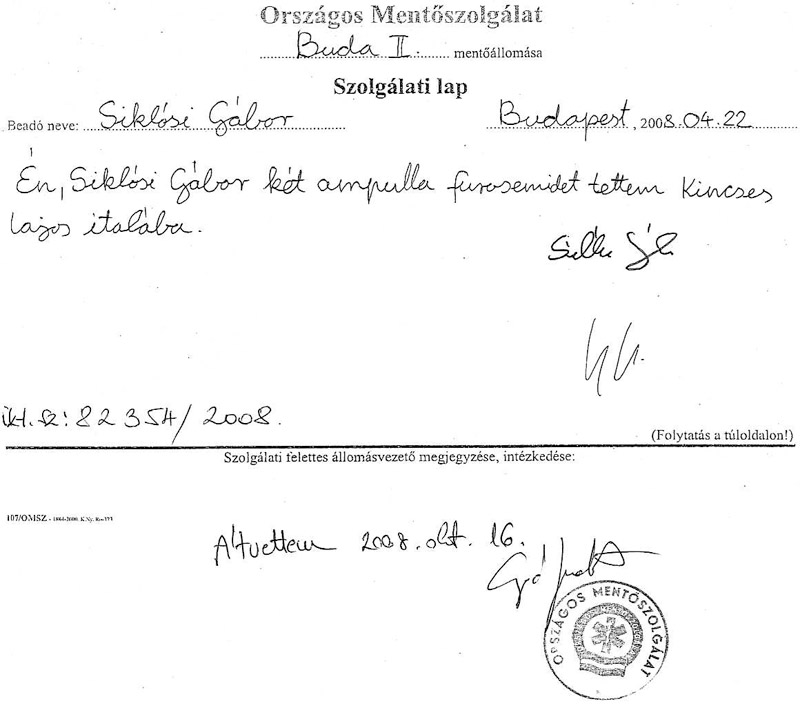 Országos Mentőszolgálat
Buda II. mentőállomása
Szolgálati lap
Beadó neve: Siklósi Gábor Budapest, 2008.04.22
Én, Siklósi Gábor két ampulla furosemidet tettem Kincses
Lajos italába.
ikt. sz: 82354/2008.
(Folytatás a túloldalon!)
Szolgálati felettes állomásvezető megjegyzése, intézkedése:
107/OMSZ
Átvettem 2008. okt. 16.
ORSZÁGOS MENTŐSZOLGÁLAT